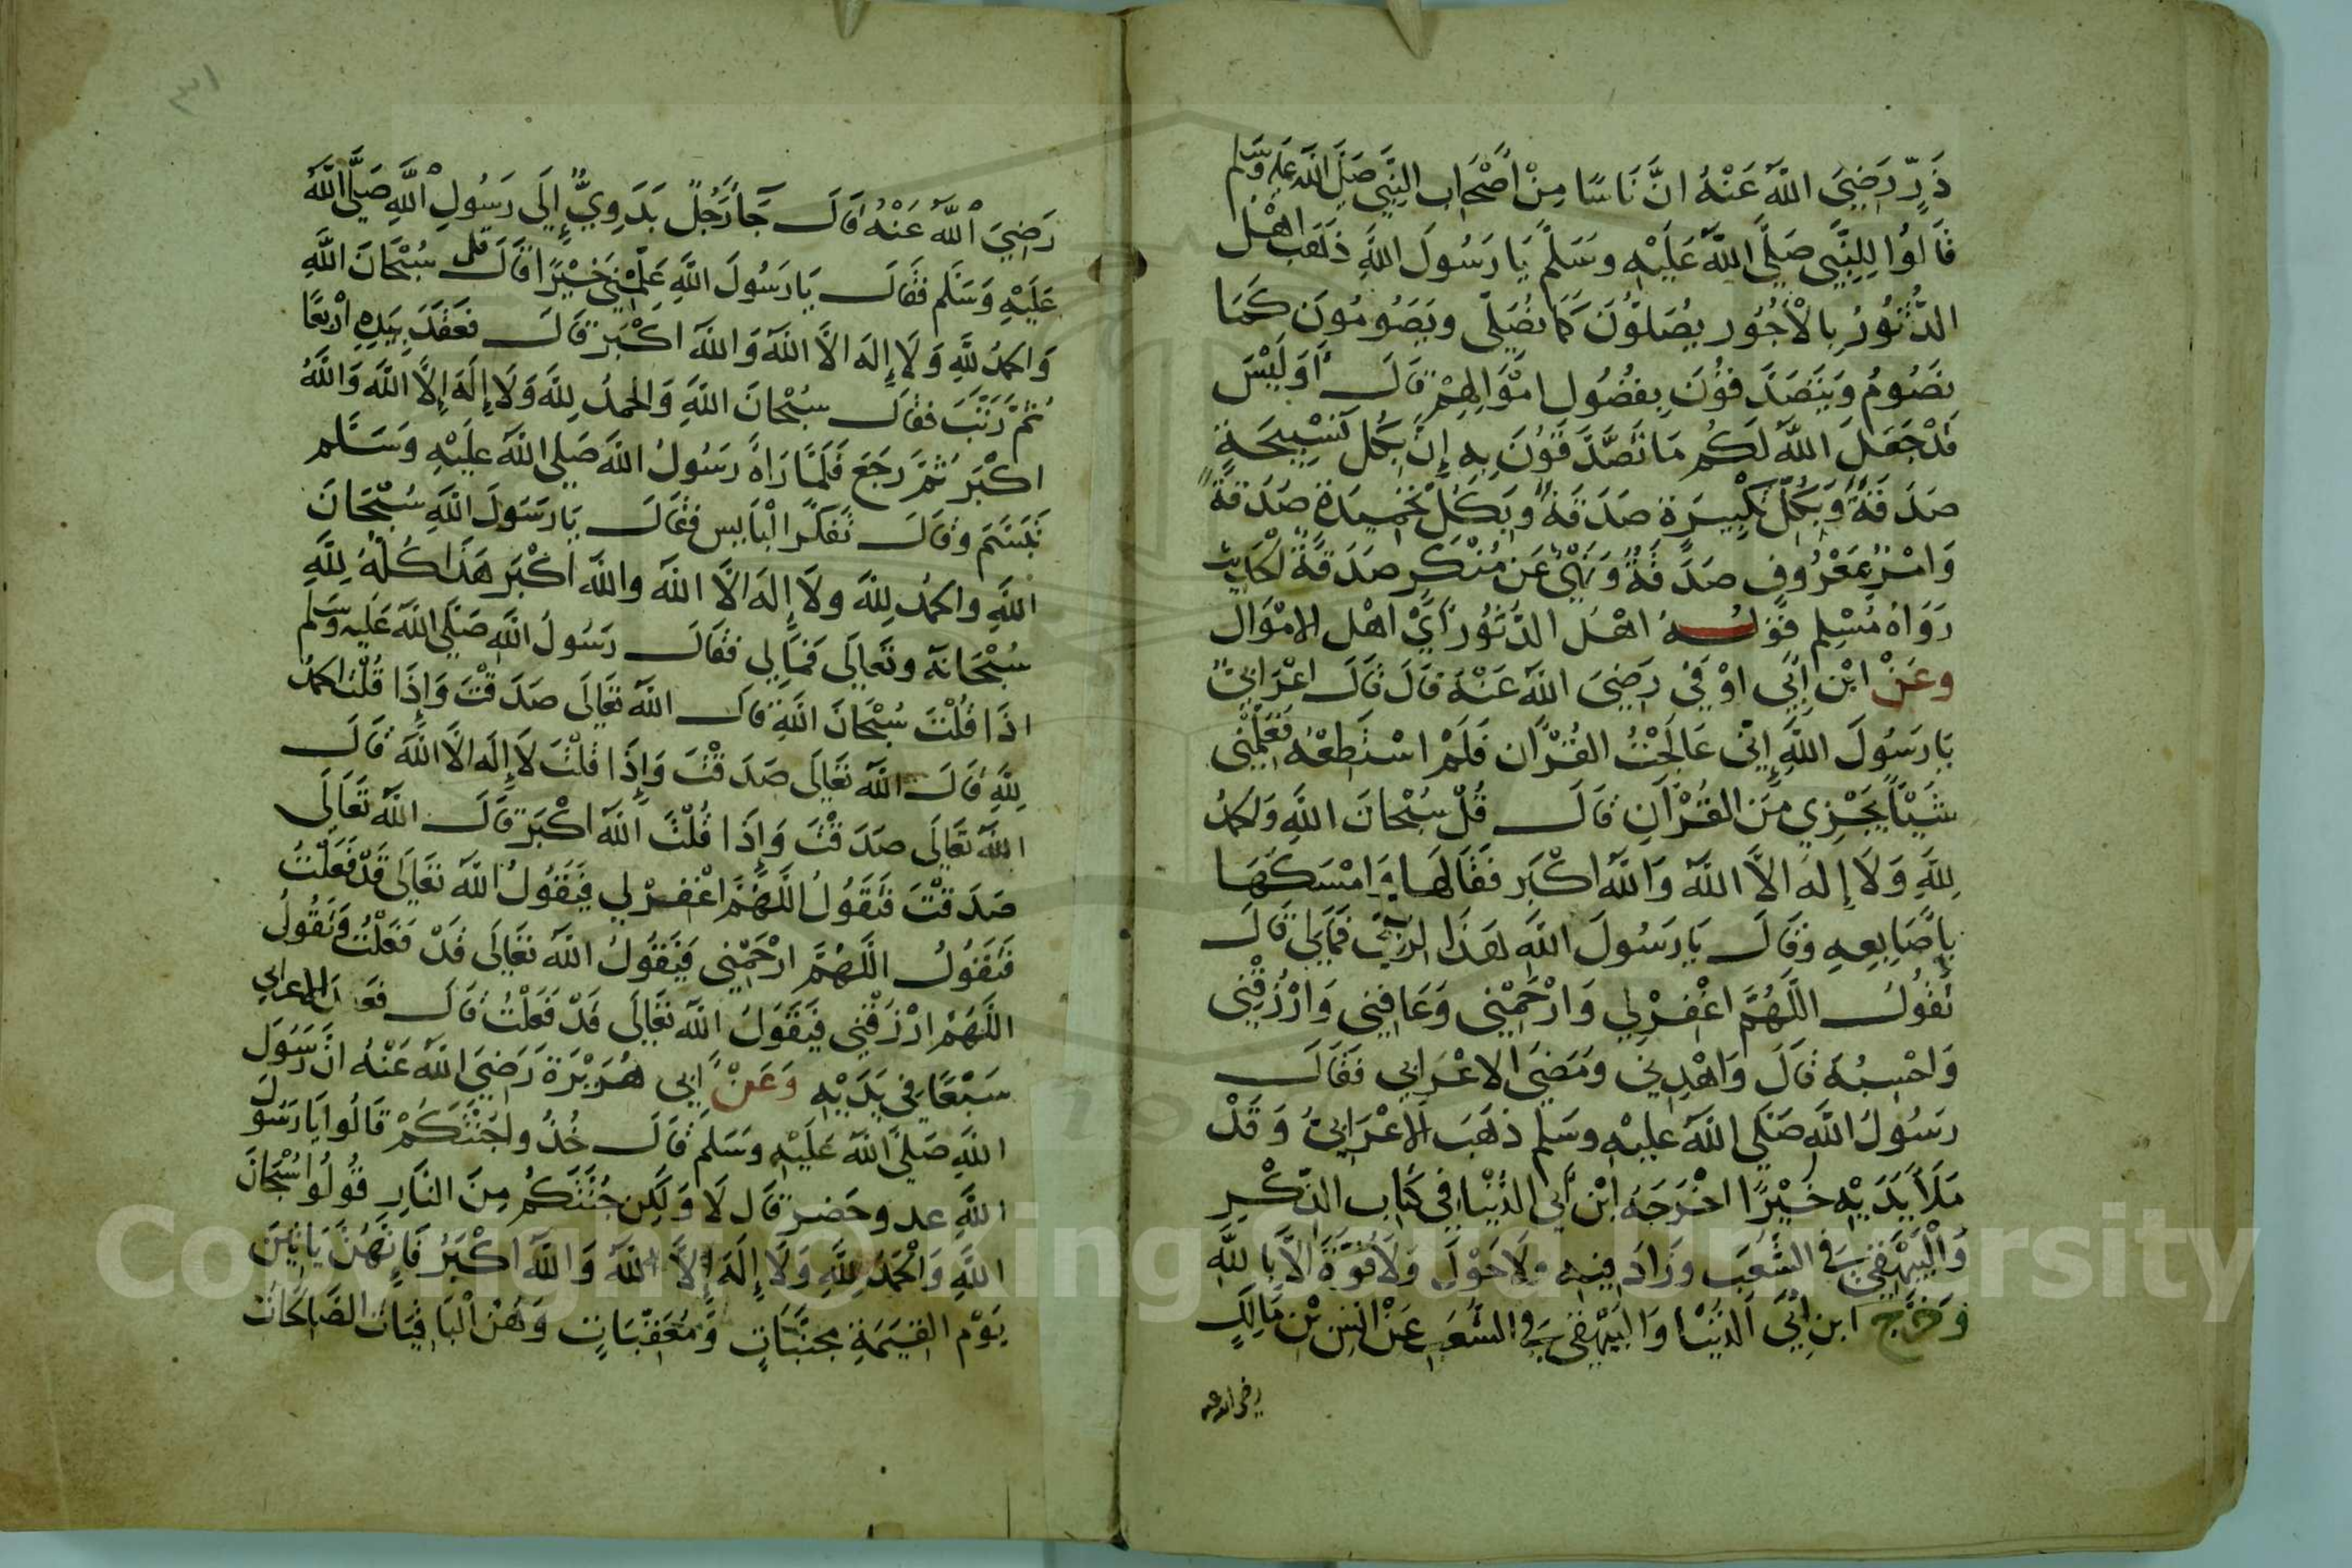 ذَرٍّ رَضِيَ اللَّهُ عَنْهُ انَّ نَاسًا مِنْ اَصْحَابِ النَّبِيِّ صَلَّى اللَّهُ عَلَيْهِ وَسَلَّم
قَالُوا لِلنَّبِيِّ صَلَّى اللَّهُ عَلَيْهِ وَسَلَّمَ يَا رَسُولَ اللَّهِ ذَهَبَ اهْلُ
الدُّثُوُرِ بِالْأُجُوُرِ يُصَلُّوْنَ كَمَا نُصَلِّى وَيَصُوُمُوُنَ كَمَا
نَصُوُمُ وَيَتَصَدَّقُوُنَ بِفُضُوُلِ امْوَالِهِمْ قَالَ أَوَلَيْسَ
قَدْ جَعَلَ اللَّهُ لَكُم مَا تَصَّدَّقوُنَ بِهِ إِنَّ بِكُلِّ تَسْبِيحَةٍ
صَدَقَةً وَبِكُلِّ تَكْبِيرَةٍ صَدَقَةً وَبِكُلِّ تَحْمِيدَةٍ صَدَقَةً
وَامْرٌ بِمَعْرُوفٍ صَدَقَةٌ وَنَهْىٌ عَن مُنْكَرٍ صَدَقَةٌ الحَدِيث
رَوَاهُ مُسْلِم قَوْلُهُ اهْلُ الدُّثُوُر أَيْ اهْل الامْوَال
وعَنْ ابْنِ اَبِي اوْفَي رَضِيَ اللَّهُ عَنْهُ قَالَ قَالَ اعْرَابِيٌّ
يَا رَسُولَ اللَّهِ إِنِّي عَالَجْتُ القُرْآن فَلَمْ اسْتَطِعْهُ فَعَلِّمْنِي
شَيْئًا يُجْزِي مِنَ القُرْآنِ قَالَ قُلْ سُبْحَانَ اللَّهِ وَالحمدُ
لِلَّهِ وَلَا إِلَهَ الَّا اللَّهُ وَاللَّهُ اكْبَر فَقَالَهَا وَامْسَكَهَا
بِاَصَابِعِهِ وَقَالَ يَا رَسُولَ اللَّهِ هَذَا لِرَبِّي فَمَالِي قَالَ
تَقُولُ اللَّهُمَّ اغْفِرْ لِي وَارْحَمْنِي وَعَافِنِي وَارْزُقْنِي
وَاحْسِبُهُ قَالَ وَاهْدِنِي وَمَضَى الاعْرَابِي فَقَالَ
رَسُولُ اللَّهِ صَلَّى اللَّهُ عَلَيْهِ وسَلَّم ذَهَبَ الاعْرَابِيُّ وَقَدْ
مَلَأَ يَدَيْهِ خَيْرًا اخْرَجَهُ ابْنُ أَبِي الدُّنْيَا فِي كِتَابِ الذِّكْرِ
وَالْبَيْهَقِيّ فِي الشُّعَبِ وَزَادَ فِيهِ وَلَا حَوْلَ وَلَا قُوَّةَ الَّا بِاللَّهِ
وَخَرَّجَ ابن اَبِي الدُّنْيَا وَالبَيْهَقِيّ فِي الشُّعَبِ عَنْ انَسِ بْنِ مَالِكٍ
رضي الله عنه
٣١
رَضِيَ اللَّهُ عَنْهُ قَالَ جَآءَ رَجُلٌ بَدَوِيٌّ إِلَى رَسُولِ اللَّهِ صَلَّى اللَّهُ
عَلَيْهِ وَسَلَّم فَقَالَ يَا رَسُولَ اللَّهِ عَلِّمْنِي خَيْرًا قَالَ قل سُبْحَانَ اللَّهِ
وَالحمدُ للَّهِ وَلَا إِلهَ الَّا اللَّهُ وَاللَّهُ اكْبَر قَالَ فعَقَدَ بِيَدِهِ أرْبَعًا
ثُمَّ رَتَّبَ فقَالَ سُبْحَانَ اللَّهِ وَالحمدُ لِلَّهِ وَلَا إِلَهَ إِلَّا اللَّهُ وَاللَّهُ
اكْبَر ثُمَّ رَجَعَ فَلَمَّا رَاهُ رَسُولُ اللَّهِ صَلَى اللَّهُ عَلَيْهِ وَسَلَّم
تَبَسَّمَ وَقَالَ تَفَكَّرَ الْبَايِس فَقَالَ يَا رَسُولَ اللَّهِ سُبْحَانَ
اللَّهِ وَالحمدُ لِلَّهِ ولَا إِلَهَ الَّا اللَّهُ واللَّهُ اكْبَر هَذَا كُلُّهُ لِلَّهِ
سُبْحَانَهُ وتَعَالَى فَمَالِي فَقَالَ رَسُولُ اللَّهِ صَلَّى اللَّهُ عَلَيْهِ وَسَلَّم
اذَا قُلْتَ سُبْحَانَ اللَّهِ قَالَ اللَّهُ تَعَالَى صَدَقْتَ وَإِذَا قُلْتَ الحمدُ
لِلَّهِ قَالَ اللَّهُ تَعَالَى صَدَقْتَ وَإِذَا قُلْتَ لَا إِلَهَ الَّا اللَّهُ قَالَ
اللَّهُ تَعَالَى صَدَقْتَ وَإِذَا قُلْتَ اللَّهُ اكْبَر قَالَ اللَّهُ تَعَالَى
صَدَقْتَ فَتَقُولُ اللَّهُمَّ اغْفِرْ لِي فَيَقُولُ اللَّهُ تعَالَى قَدْ فَعَلْتُ
فَتَقُولُ اللَّهُمَّ ارْحَمْنِي فَيَقُولُ اللَّهُ تعَالَى قَدْ فَعَلْتُ وَتَقُولُ
اللَّهُمَّ ارْزُقْنِي فَيَقُولُ اللَّهُ تعَالَى قَدْ فَعَلْتُ قَالَ فعقد الاعرابي
سَبْعًا فِي يَدَيْهِ وَعَنْ اَبِي هُرَيْرَةَ رَضِيَ اللَّهُ عَنْهُ انَّ رَسُولَ
اللَّهِ صَلَّى اللَّهُ عَلَيْهِ وَسَلَّمَ قَالَ خُذُوا جُنَّتَكُمْ قَالُوا يَا رَسُولَ
اللَّهِ عدو حَضر قَال لَا وَلَكِن جُنَّتَكُمْ مِنَ النَّارِ قُولُوا سُبْحَانَ
اللَّهِ وَالْحَمْدُ لِلَّهِ وَلَا إِلَهَ إِلَّا اللَّهُ وَاللَّهُ اكْبَرُ فَإِنَّهُنَّ يَاتِيَن
يَوْم القِيَمَةِ مجَنَّبَاتٍ وَمُعَقِّبَاتٍ وَهُنَّ الْبَاقِيَات الصَّالِحَات
Copyright © King Saud University